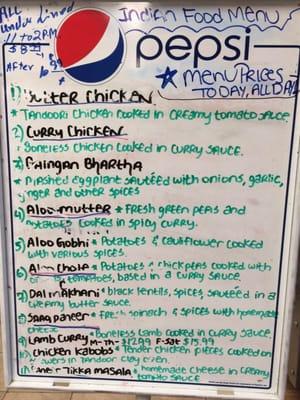 ALL
11 to 2PM
$8
AFter
Indian Food Menu
pepsi
menu Prices
TODAY, ALL DAY
1) Butter Chicken
* Tandoori Chicken Cooked in Creamy tomato Sauce.
2) Curry Chicken
* Boneless Chicken Cooked in Curry Sauce.
3) Bhartha
* Mashed eggplant sautéed with onions, garlic,
ginger and other spices
4) Aloo-mutter * Fresh green peas and
Potatoes Cooked in spicy curry.
5) Aloo Gobhi * Potatoes & Cauliflower cooked
with various spices.
6) Chole * Potatoes & chick peas cooked with
tomatoes, based in a curry sauce
7) Dal makhani * black lentils, spices, sautéed in a
creamy butter sauce.
8) Saag paneer * Fresh spinach & spices with homemade
cheese
9) Lamb Curry * Boneless Lamb Cooked in Curry Sauce
M-Th- $12.99 F-Sat $15.99
10) Chicken Kabobs * Tender Chicken pieces cooked on
skewers in Tandoor clay oven.
11) Paneer Tikka Masala * homemade Cheese in Creamy
tomato sauce